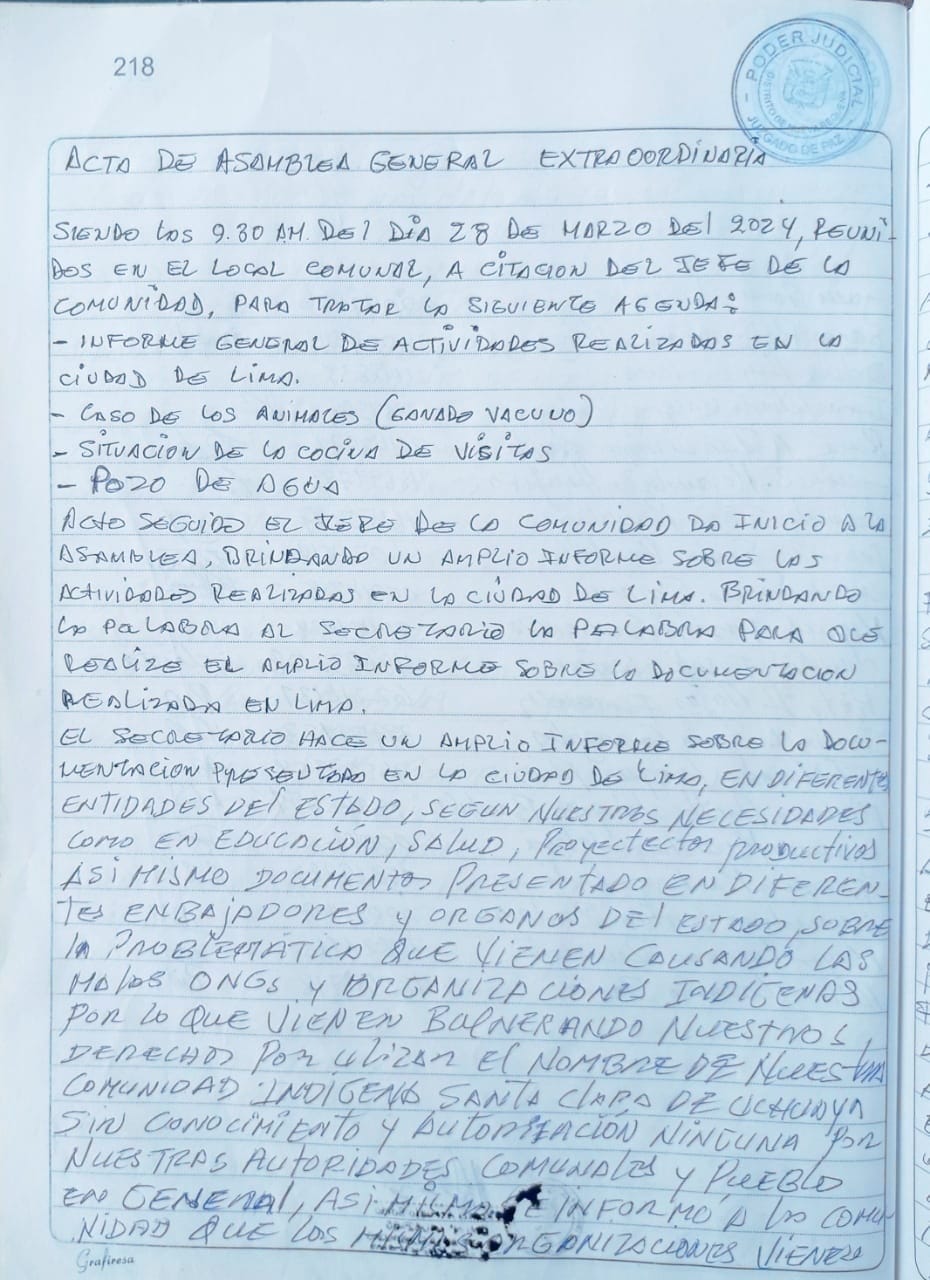 218
PODER JUDICIAL
JUZGADO DE PAZ
ACTA DE ASAMBLEA GENERAL EXTRAOORDINARIA
SIENDO LAS 9.30 AM. DEL DÍA 28 DE MARZO DEL 2024, REUNI-
DOS EN EL LOCAL COMUNAL, A CITACION DEL JEFE DE LA
COMUNIDAD, PARA TRATAR LA SIGUIENTE AGENDA:
- INFORME GENERAL DE ACTIVIDADES REALIZADAS EN LA
CIUDAD DE LIMA.
- CASO DE LOS ANIMALES (GANADO VACUNO)
- SITUACION DE LA COCINA DE VISITAS
- POZO DE AGUA
ACTO SEGUIDO EL JEFE DE LA COMUNIDAD DA INICIO A LA
ASAMBLEA, BRINDANDO UN AMPLIO INFORME SOBRE LAS
ACTIVIDADES REALIZADAS EN LA CIUDAD DE LIMA. BRINDANDO
LA PALABRA AL SECRETARIO LA PALABRA PARA QUE
REALIZE EL AMPLIO INFORME SOBRE LA DOCUMENTACION
REALIZADA EN LIMA.
EL SECRETARIO HACE UN AMPLIO INFORME SOBRE LA DOCU-
MENTACION PRESENTADA EN LA CIUDAD DE LIMA, EN DIFERENTES
ENTIDADES DEL ESTADO, SEGUN NUESTRAS NECESIDADES
COMO EN EDUCACIÓN, SALUD, Proyectector productivos
ASI MISMO DOCUMENTOS PRESENTADO EN DIFEREN-
TES ENBAJADORES y ORGANOS DEL ESTADO, SOBRE
la PROBLEMÁTICA QUE VIENEN CAUSANDO LAS
MALAS ONGs y ORGANIZACIONES INDIGENAS
POR LO QUE VIENEN BULNERANDO NUESTROS
DERECHOS POR ULIZAR El NOMBRE DE NUESTRA
COMUNIDAD INDIGENA SANTA CLARA DE UCHUNYA
SIN CONOCIMIENTO y AUTORIZACIÓN NINGUNA POR
NUESTRAS AUTORIDADES COMUNALES y PUEBLO
EN GENERAL, ASI MISMO SE INFORMO A LA COMU
NIDAD QUE LOS MISMAS ORGANIZACIONES VIENEN
Grafiresa